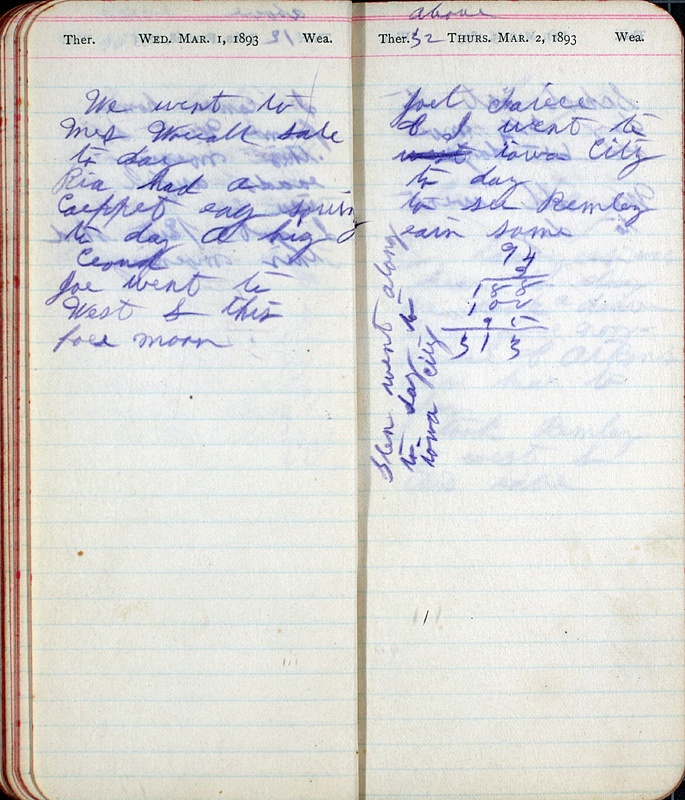 Ther. WED. MAR. 1, 1893 Wea.
We went to
Mrs sale
to day
Ria had a
Carppet rag
to day a big
Croud
Joe went to
West L this
fore moon
above
Ther. 32 THURS. MAR. 2, 1893 Wea.
Joel
& I went to
went iowa City
to day
to see Remley
earin some
94
2
188
9
313
Glen went along
to day to
iowa City